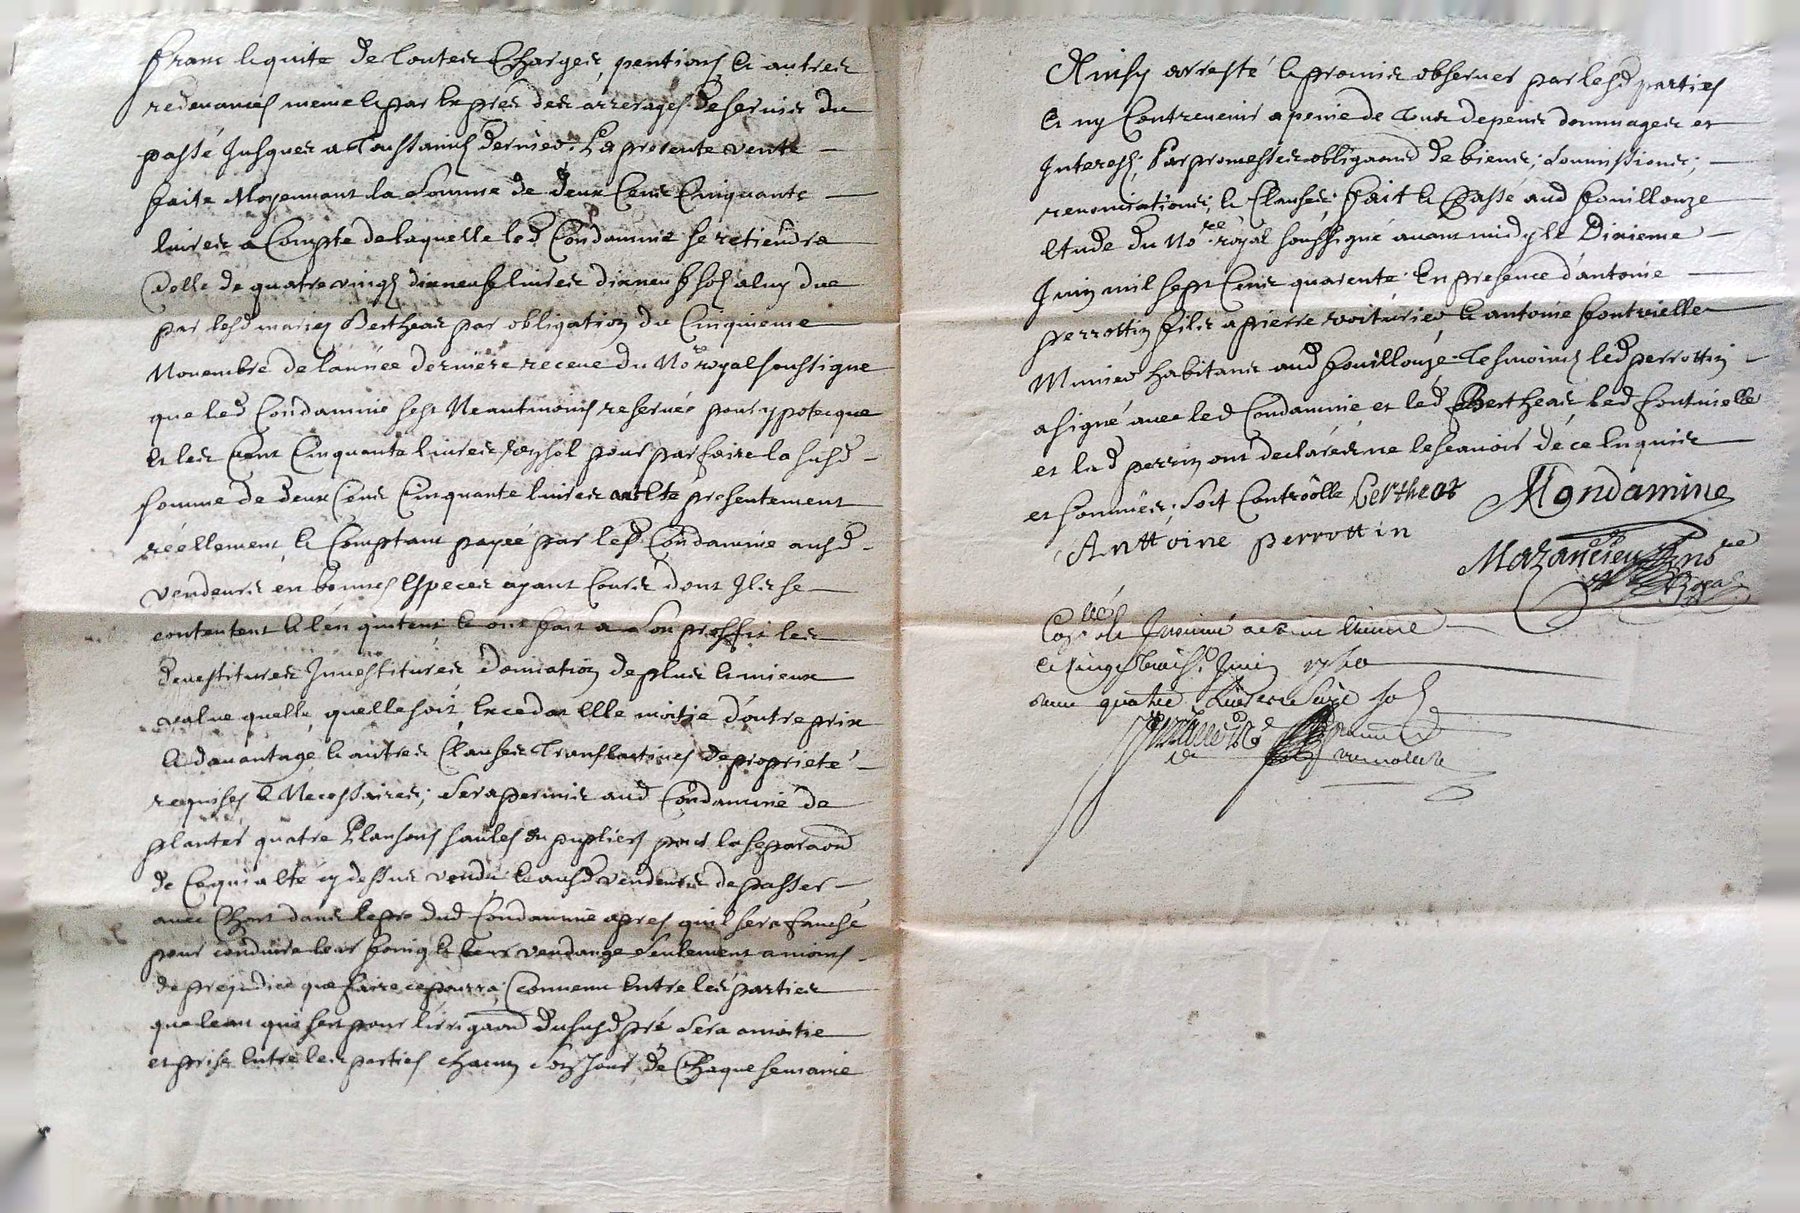 franc & quite de toutes Charges, pentions, & autres
redevances meme & par Exprés des arrerages de servis du
passé Jusques a Toussaints dernier. La presente vente
faite Moyennant la Somme de deux Cens Cinquante
livres a Compte de laquelle led Condamine se retiendra
Celle de quatre vingt dixneuf livres dixneuf sols a luy due
par lesd mariez Bertheas par obligation du Cinquieme
Novembre de lannée derniere receue du No.re royal soussigne
que led Condamine sest Neantmoins reservée pour ypoteque
Et les Cent Cinquante livres un sol pour parfaire la susd
somme de deux Cens Cinquante livres a esté presentement
réellement & Comptant payée par led Condamine ausd
vendeurs en bonnes Especes ayant Cours dont Ils se
contentent & len quitent, & ont fait a Son proffit les
devestitures Jnvestitures donnation de plus & mieux
value quelle, quelle soit, Exceda Elle moitie d'outre prix
& davantage & autres Clauses Translatives de proprieté
requises & Necessaires; Sera permis aud Condamine de
planter quatre Plansons saules ou pupliers pour la separaon
de Cequi a esté cy dessus vendu & ausd vendeurs de passer
avec Char dans le pre dud Condamine apres quil sera fauché
pour conduire leur foing & leur vendange Seulement a moins
de prejudice que faire ce pourra; Convenu Entre les parties
que leau qui sert pour lirrigaon du susd pré Sera a moitie
et prise Entre les parties chacun son Jour de Chaque semaine
Ainsy arresté & promis observer par lesd parties
& ny Contrevenir a peine de Tous depens dommages et
Interests; Par promesses obligaons de biens; Soumissions;
renonciations, & Clauses; fait & Passé aud fouillouze
Etude du No.re royal soussigné avant midy le Dixieme
Juin mil sept Cens quarente En presence d'antoine
perrottin fils a pierre voiturier, & antoine fontvielle
Munier habitans aud fouillouze Tesmoins led perrottin
a signé avec led Condamine et led Bertheas, led fontvielle
et lad perrin ont declarés ne le scavoir de ce Enquis
et sommés; Soit Controolle Bertheas Mondamine
Anttoine perrottin
Mazancieu No.re
Royal
le vingt trois.e Juin 1740
quatre Livres Seize sols